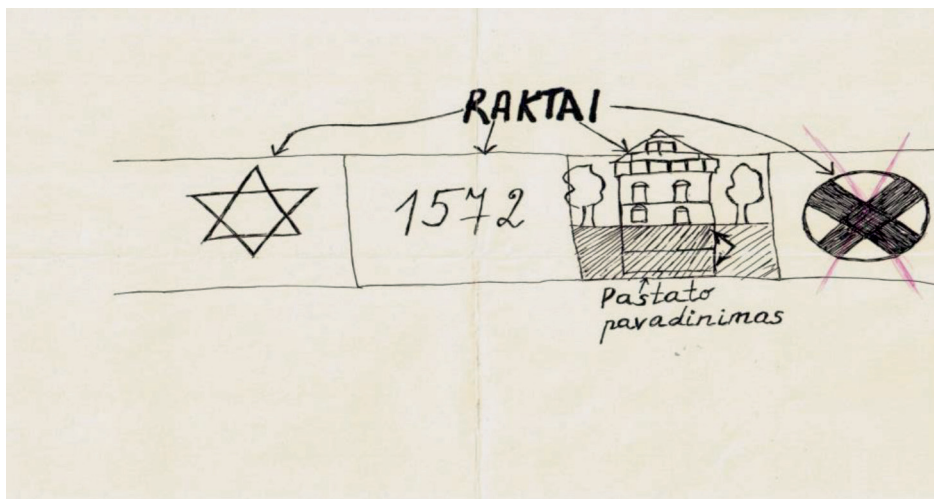 RAKTAI
1572
Pastato
pavadinimas